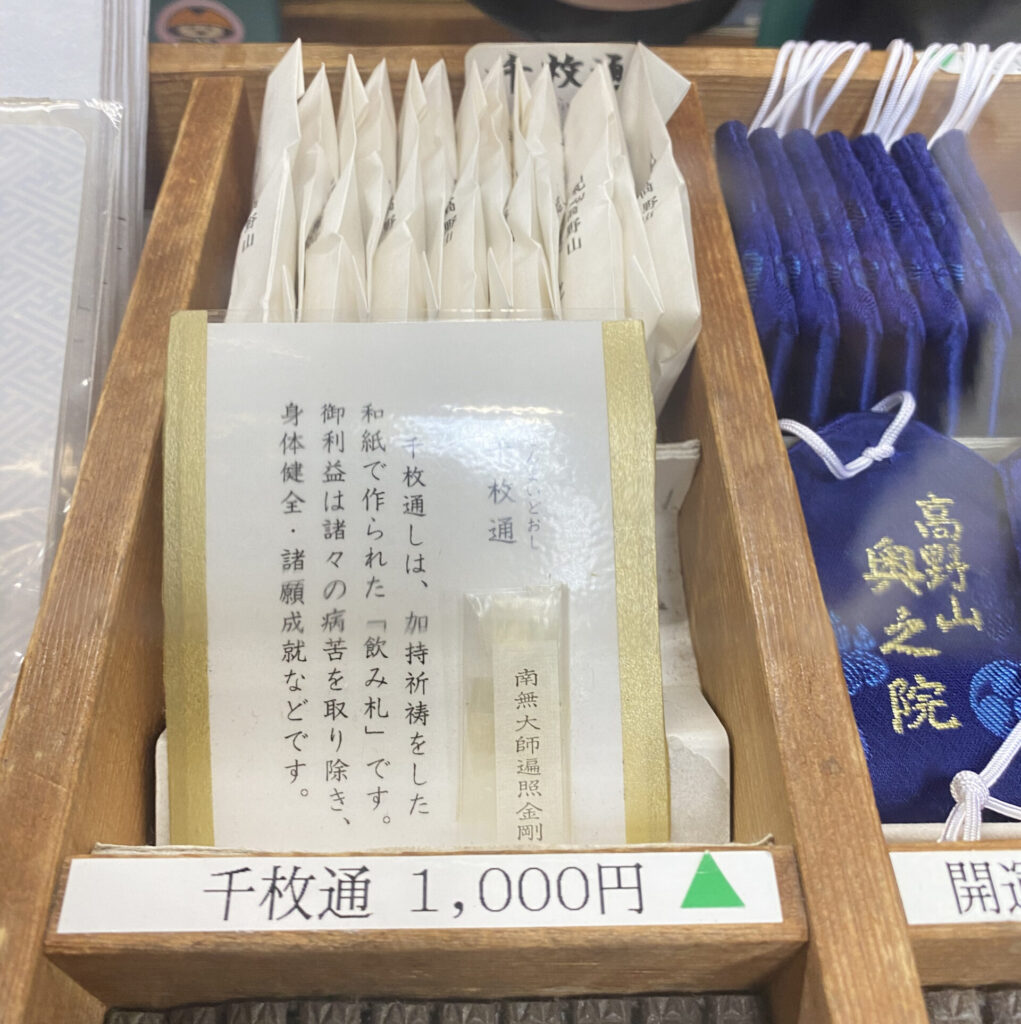 千枚通
高野山
紀州高野山
せんまいどおし
千枚通
千枚通しは、加持祈祷をした
和紙で作られた「飲み札」です。
御利益は諸々の病苦を取り除き、
身体健全・諸願成就などです。
南無大師遍照金剛
千枚通 1,000円
高野山
奥之院
開運